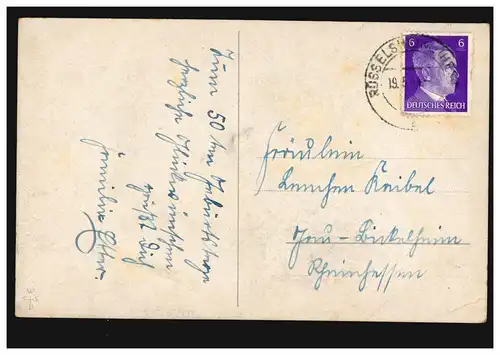 Zum 50ten Geburtstage
herzliche Glückwünschen
grüßt Dich
Familie
RÜSSELSHEIM
19.
6 6
DEUTSCHES REICH
Fräulein
Lenchen Keibel
Gau-Bickelheim
Rheinhessen